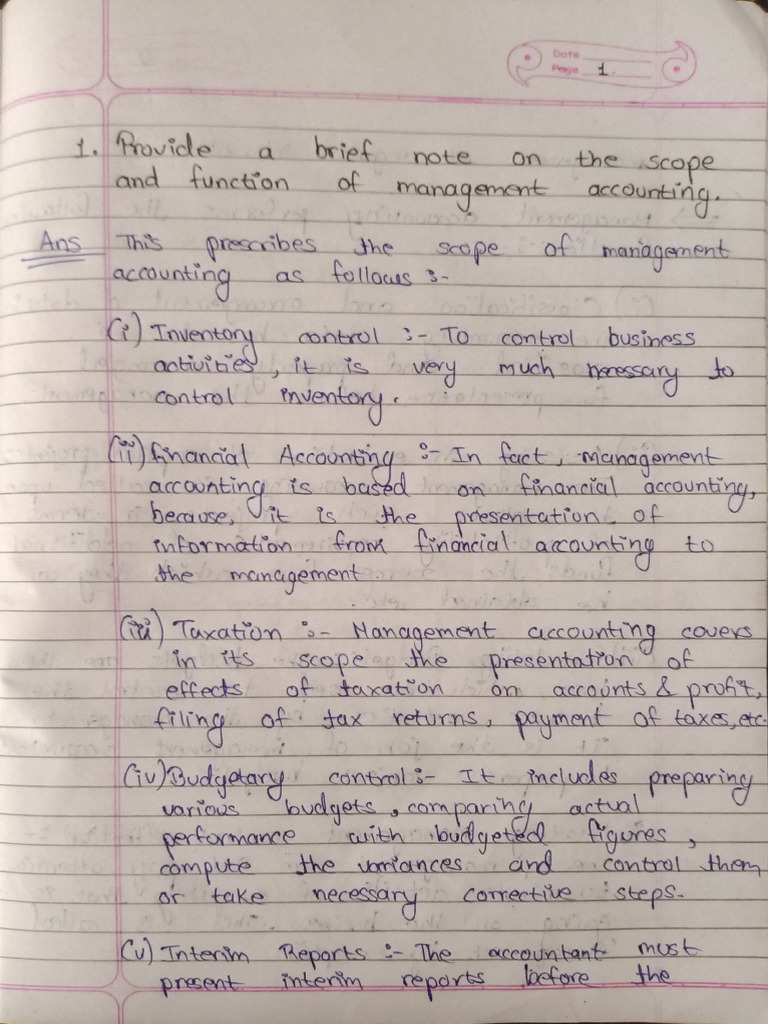 Date
Page 1.
1. Provide a brief note on the scope
and function of management accounting.
Ans This prescribes the scope of management
accounting as follows :-
(i) Inventory control :- To control business
activities, it is very much necessary to
control inventory.
(ii) financial Accounting :- In fact, management
accounting is based on financial accounting,
because, it is the presentation of
information from financial accounting to
the management.
(iii) Taxation :- Management accounting covers
in its scope the presentation of
effects of taxation on accounts & profit,
filing of tax returns, payment of taxes, etc.
(iv) Budgetary control :- It includes preparing
various budgets, comparing actual
performance with budgeted figures,
compute the variances and control them
or take necessary corrective steps.
(v) Interim Reports :- The accountant must
present interim reports before the